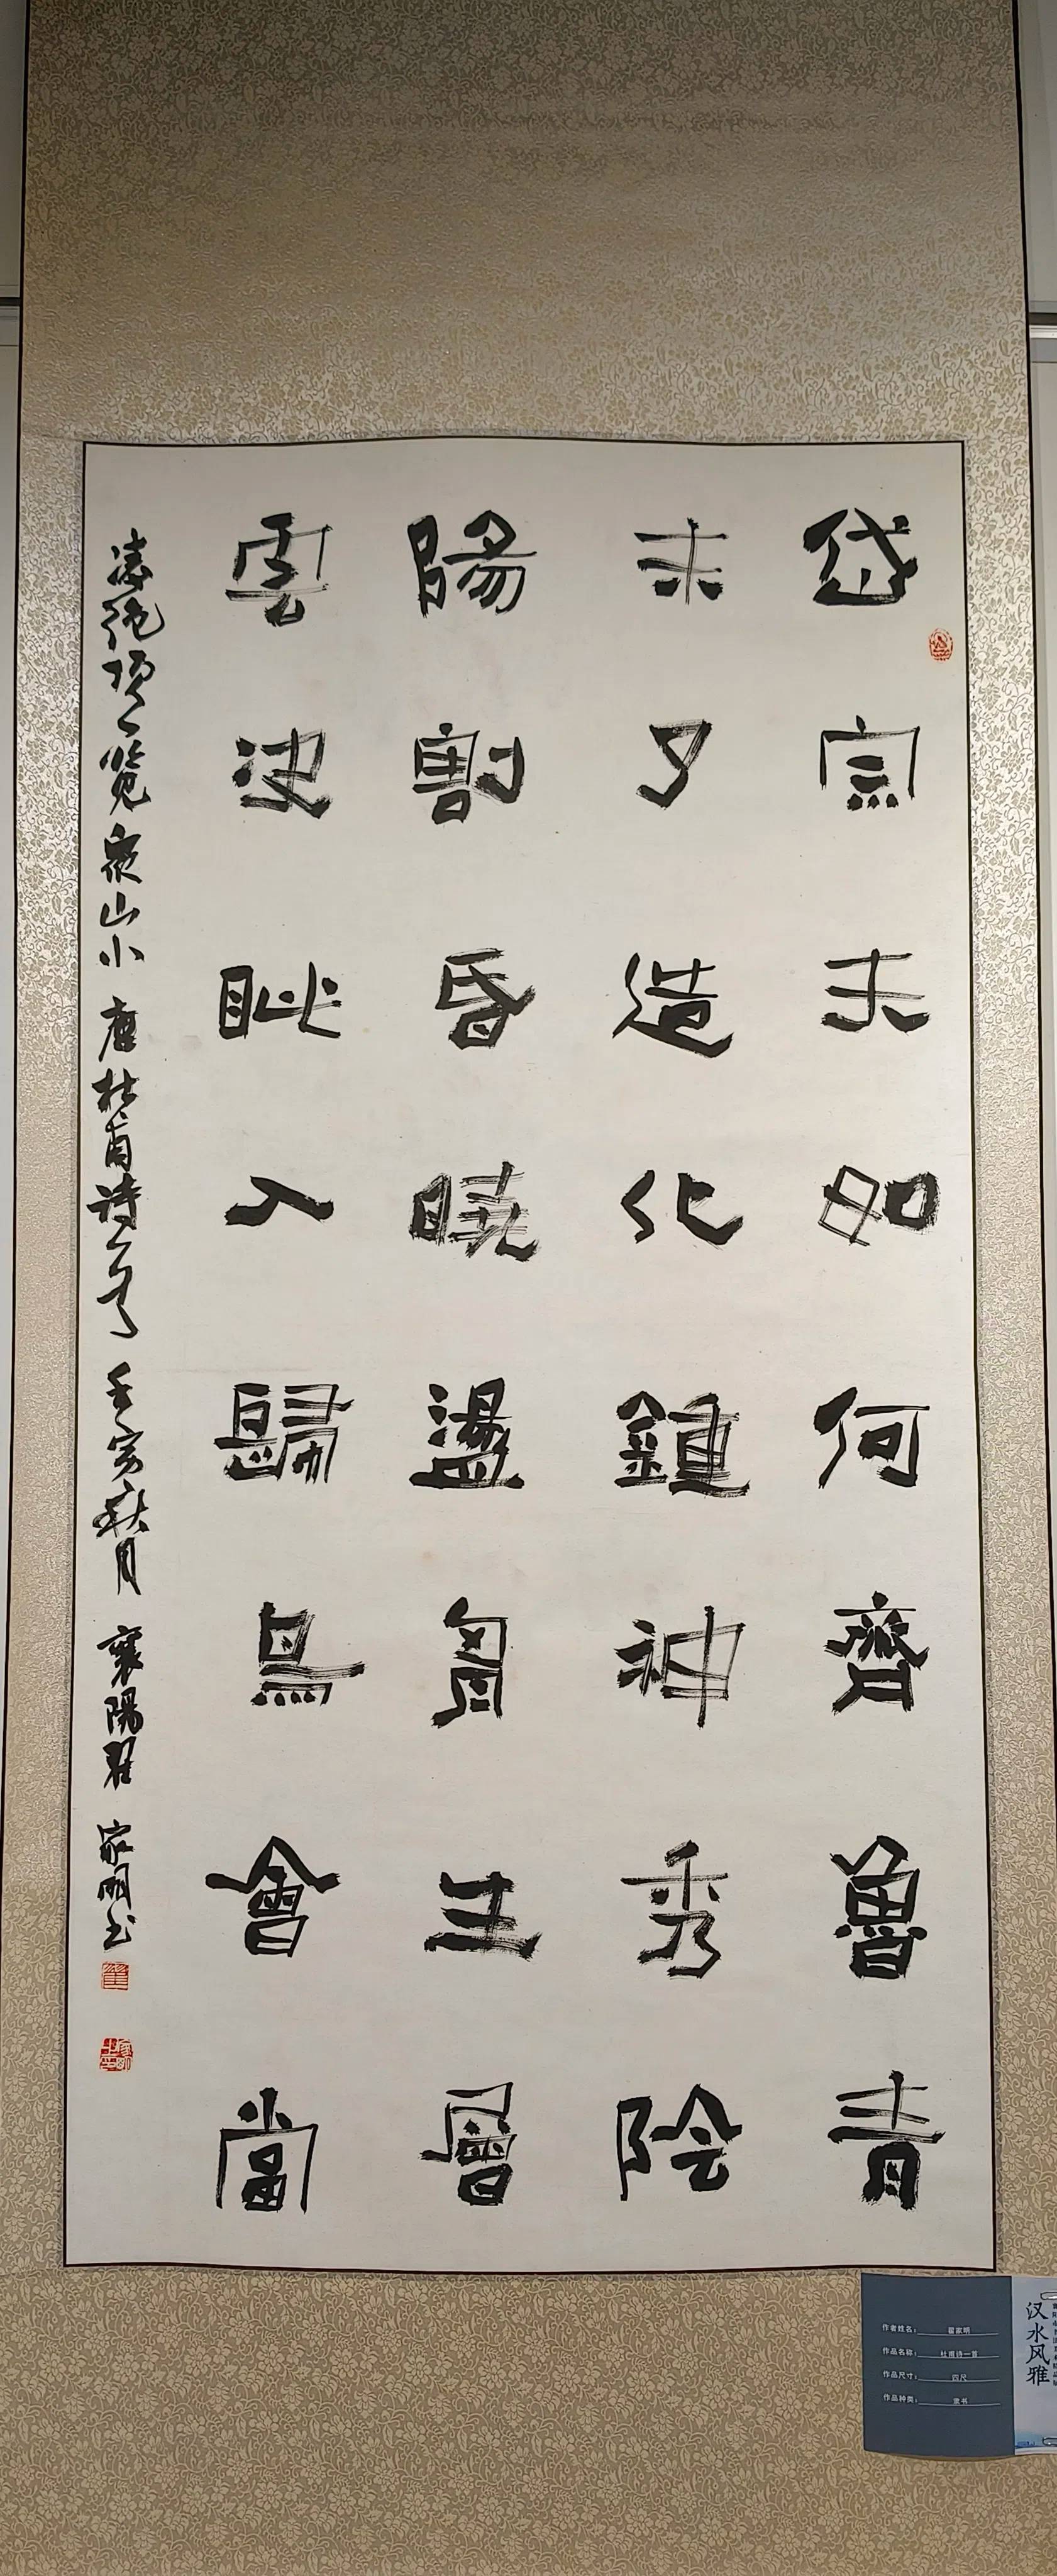 岱宗夫如何齊魯青
未了造化鍾神秀陰
陽割昏曉盪胷生層
雲決眦入歸鳥會當
凌绝頂一覽衆山小 唐杜甫詩一首 壬寅秋月 襄陽翟家明书
作者姓名：翟家明
作品名称：杜甫诗一首
作品尺寸：四尺
作品种类：隶书
汉水风雅